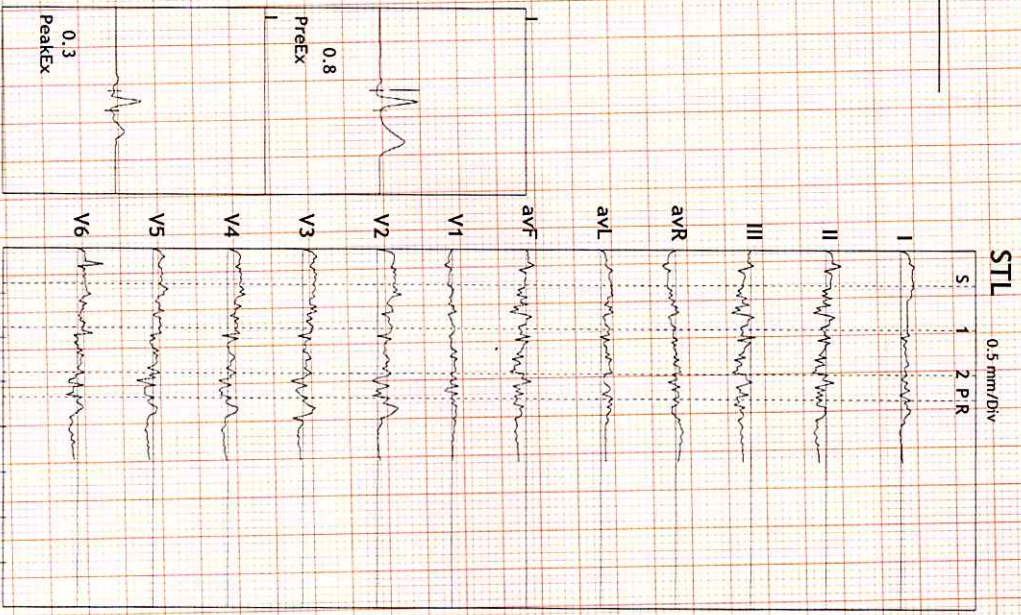 STL 0.5 mm/Div
S 1 2 P R
I
II
III
avR
avL
avF
V1
V2
V3
V4
V5
V6
I
0.8
PreEx
I
0.3
PeakEx